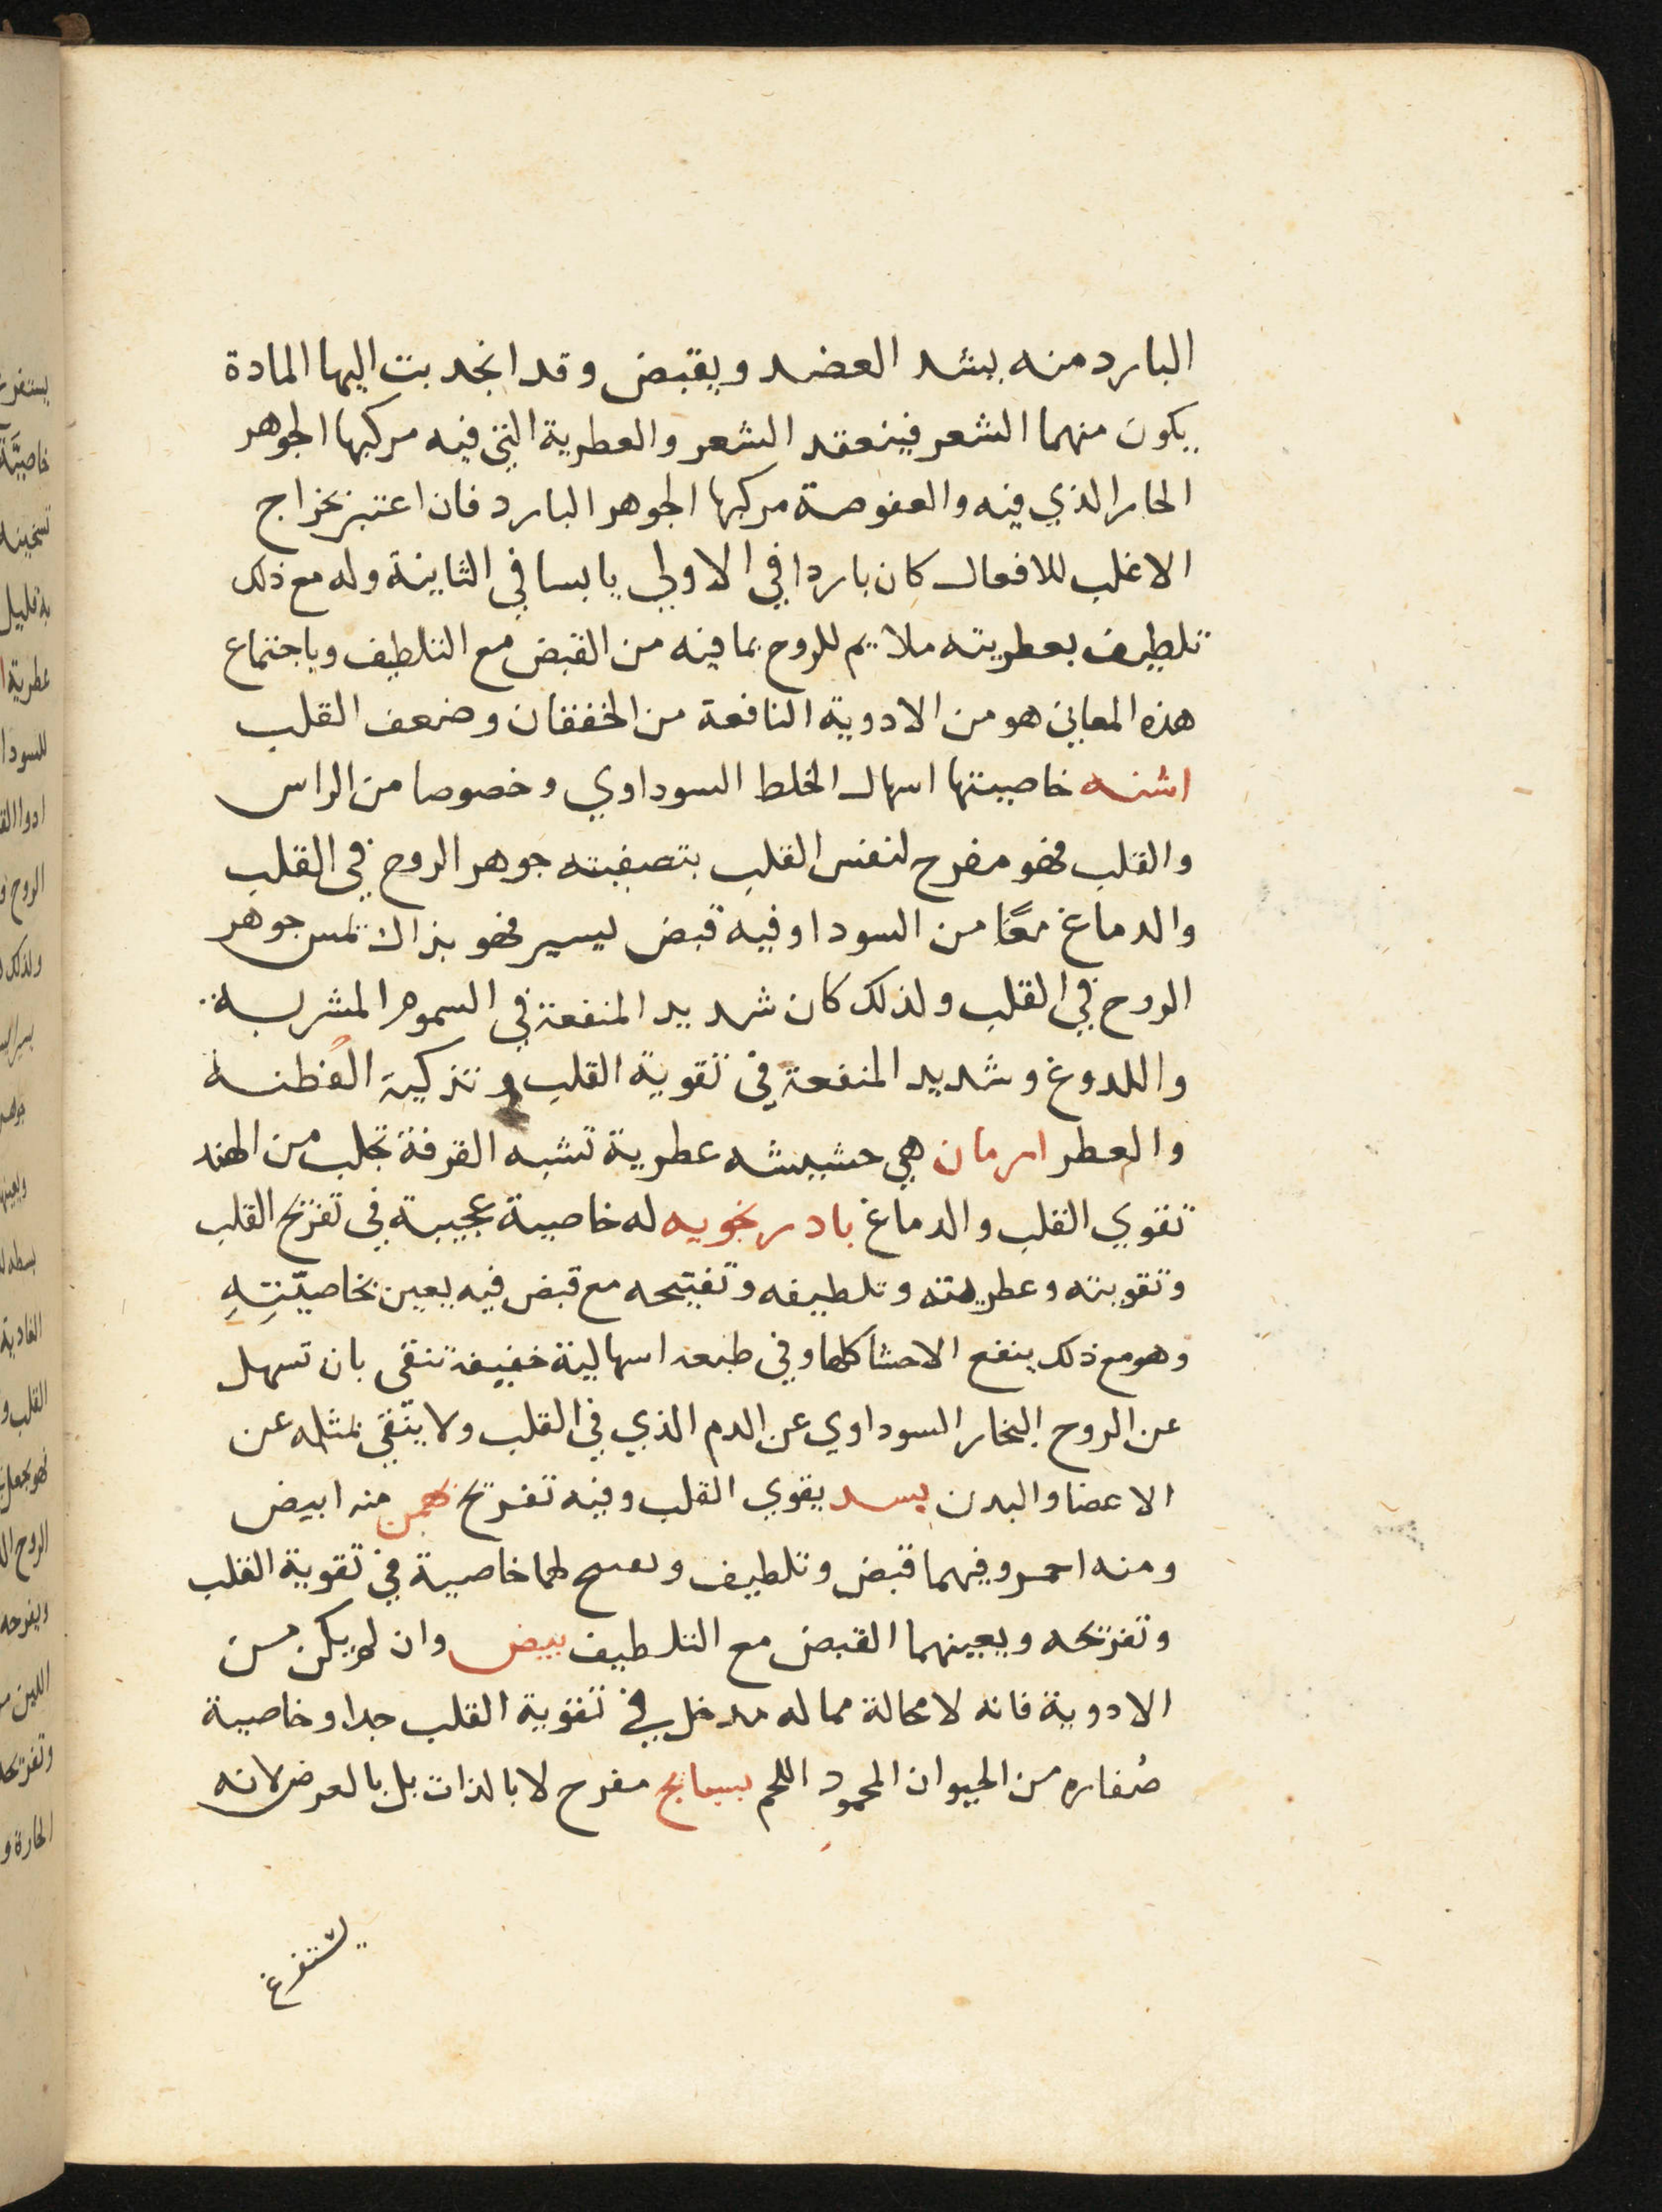 البارد منه يشد العضد ويقبض وقد انجذبت اليها المادة
يكون منهما الشعر فينعقد الشعر والعطرية التي فيه مركبها الجوهر
الحار الذي فيه والعفوصة مركبها الجوهر البارد فان اعتبر بخراج
الاغلب للافعال كان باردا في الاولي يابسا في الثانية وله مع ذلك
تلطيف بعطريته ملايم للروح بما فيه من القبض مع التلطيف وباجتماع
هذه المعاني هو من الادوية النافعة من الخفقان وضعف القلب
اشنه خاصيتها اسهال الخلط السوداوي وخصوصا من الراس
والقلب فهو مفرح لنفس القلب بتصفيته جوهر الروح في القلب
والدماغ معًا من السودا وفيه قبض ليسير فهو بذاك جوهر
الروح في القلب ولذلك كان شديد المنفعة في السموم المشربه
واللدوغ وشديد المنفعة في تقوية القلب و تذكية الفطنه
والعطر امرمان هي حشيشه عطرية تشبه القرفة تجلب من الهند
تقوي القلب والدماغ بادرنجويه له خاصية عجيبة في تفريح القلب
وتقويته وعطريته وتلطيفه وتفتيحه مع قبض فيه يعين بخاصيّتِهِ
وهو مع ذلك ينفع الاحشا كلها وفي طبعه اسهالية خفيفة تنقي بان تسهل
عن الروح البخار السوداوي عن الدم الذي في القلب ولا ينّقي بمثله عن
الاعضا والبدن بسد يقوي القلب وفيه تفريح بهمن منه ابيض
ومنه احمر وفيهما قبض وتلطيف لهما خاصية في تقوية القلب
وتفريحه ويعينهما القبض مع التلطيف بيض وان لم يكن من
الادوية فانه لا محالة مما له مدخل في تقوية القلب جدا وخاصية
صُفاره من الحيوان المحمود اللحم بسبايج مفرح لا بالذات بل بالعرض لانه
يستفرغ